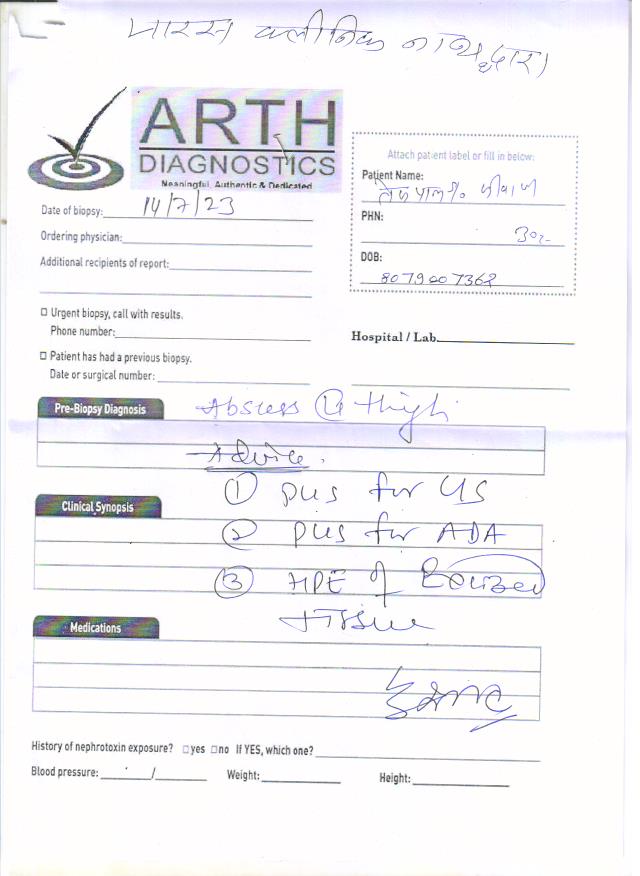 भारत क्लीनिक नाथद्वारा
ARTH
DIAGNOSTICS
Meaningful, Authentic & Dedicated
Attach patient label or fill in below:
Patient Name:
Date of biopsy: 14/7/23
PHN:
Ordering physician:
DOB:
8079007362
Additional recipients of report:
□ Urgent biopsy, call with results.
Phone number:
Hospital / Lab.
□ Patient has had a previous biopsy.
Date or surgical number:
Pre-Biopsy Diagnosis
Abscess (L) thigh
Advice.
① pus for CS
Clinical Synopsis
② pus for ADA
③ HPE of
Tissue
Medications
History of nephrotoxin exposure? □yes □no If YES, which one?
Blood pressure: / Weight: Height: